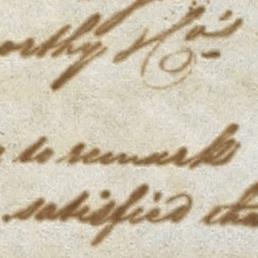 orthy Ho's
to remark
satisfied tha